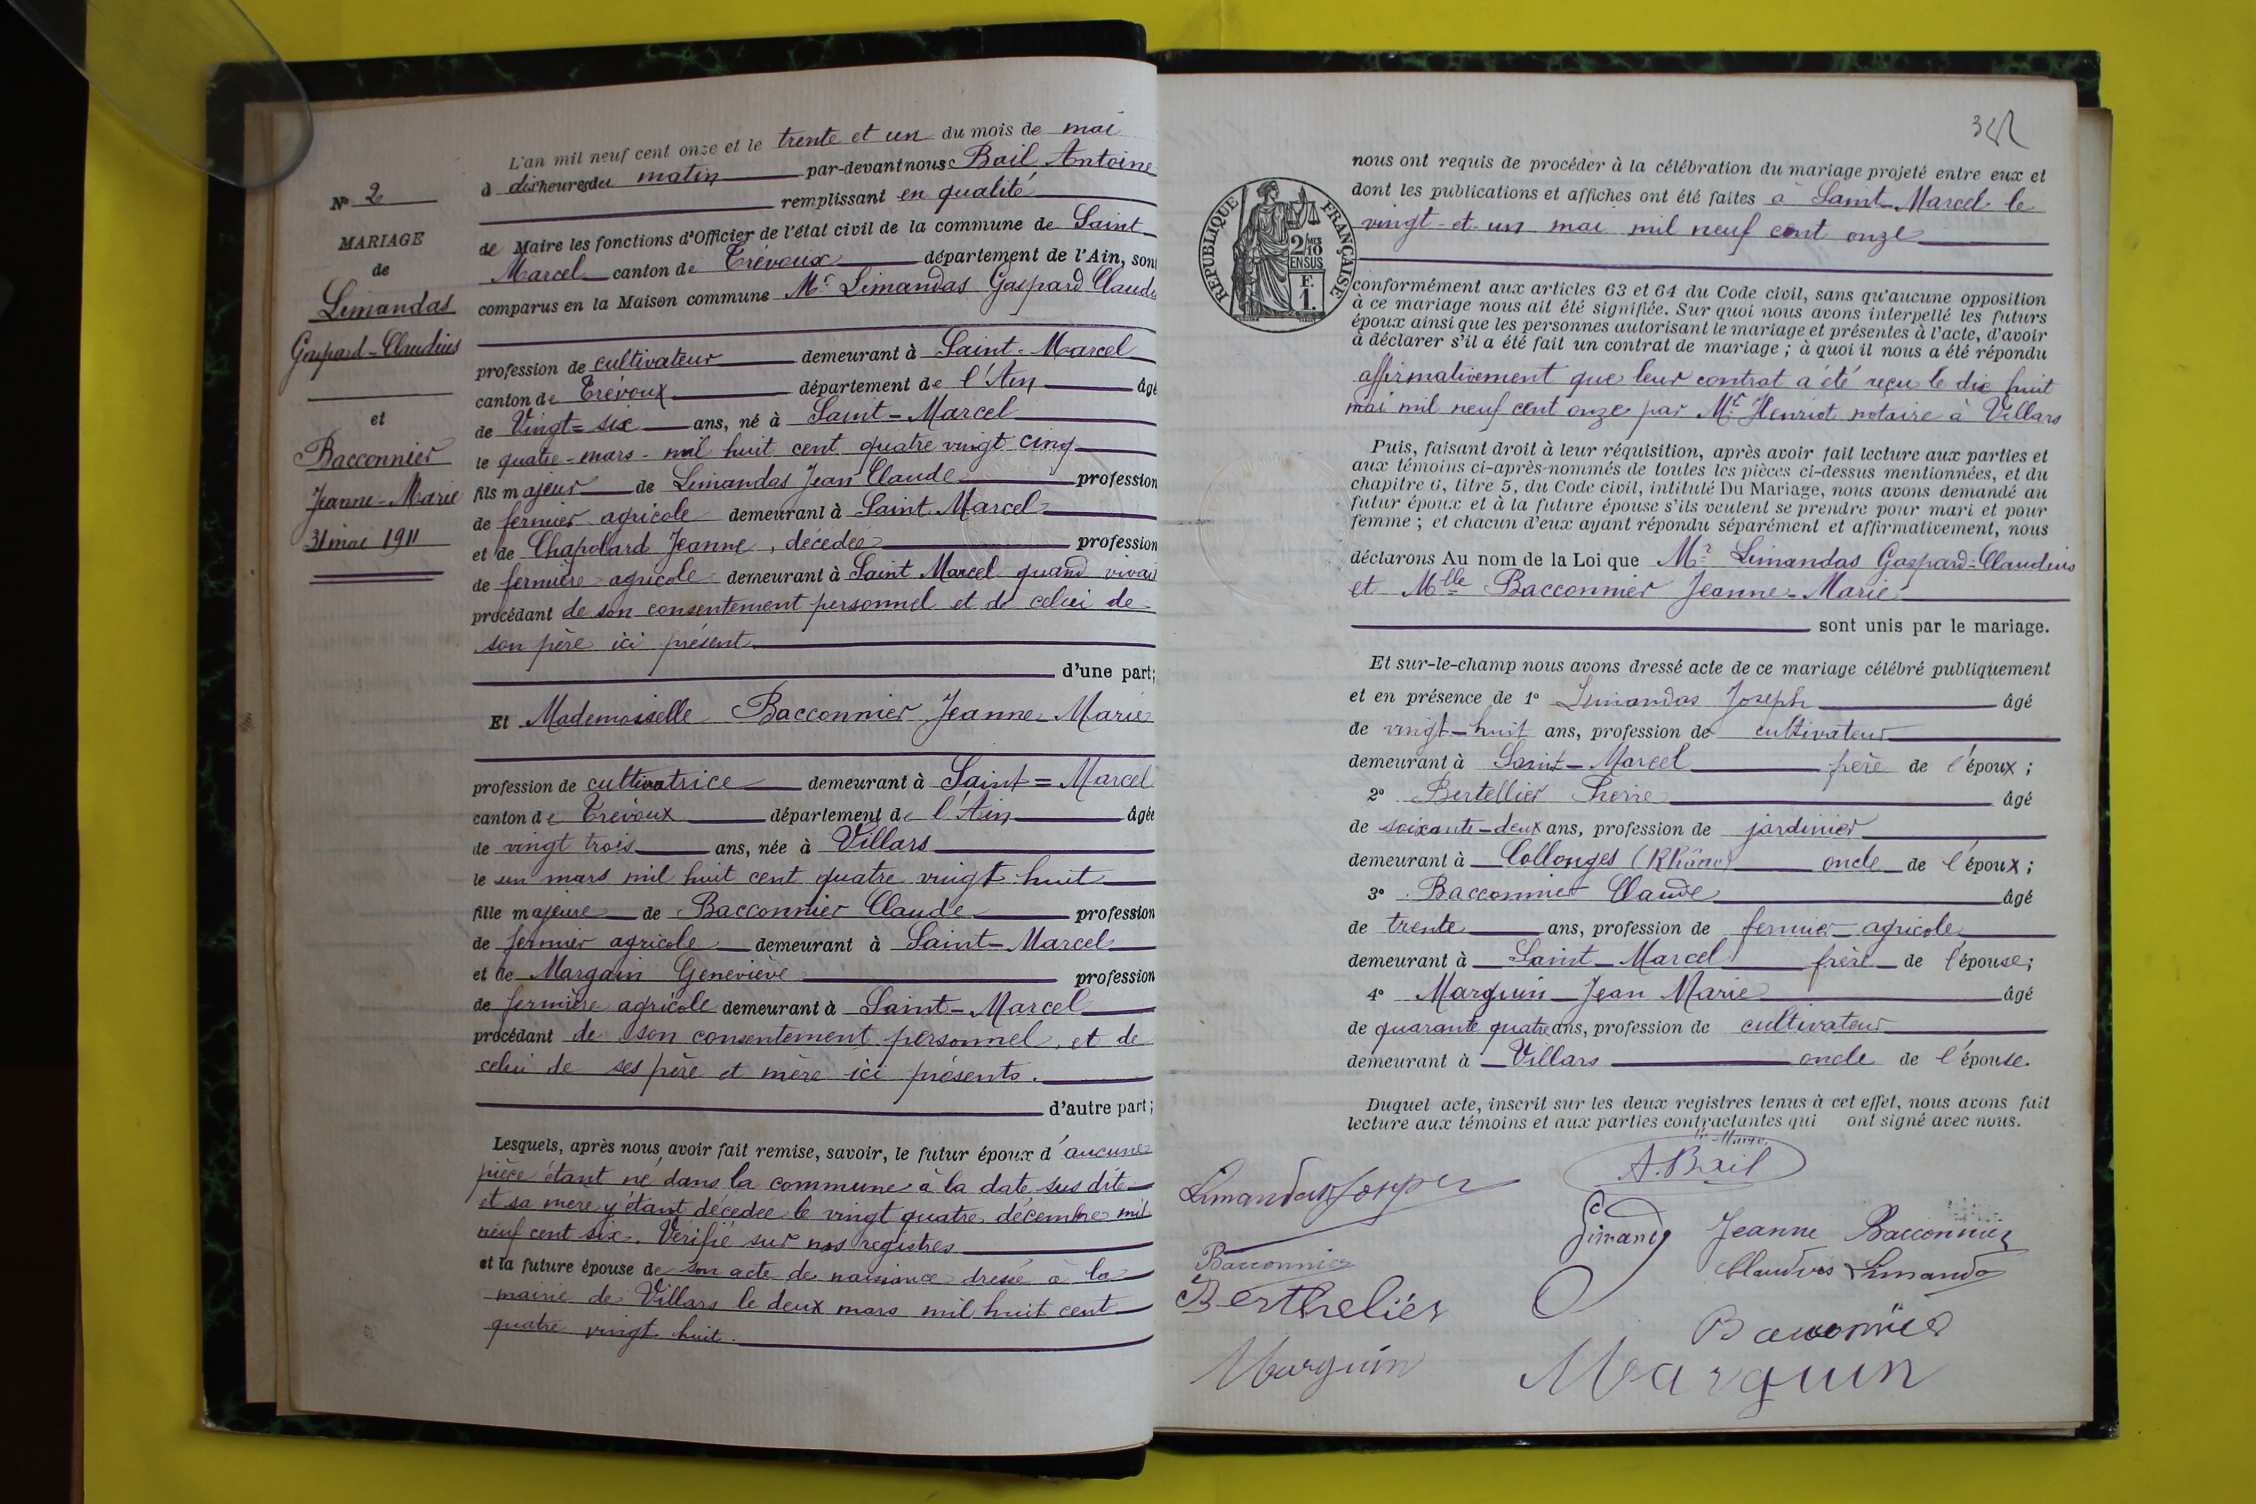 N° 2
MARIAGE
de
Limandas
Gaspard-Claudius
et
Bacconnier
Jeanne-Marie
31 mai 1911
L'an mil neuf cent onze et le trente et un du mois de mai
à dix heures du matin par-devant nous Bail Antoine
remplissant en qualité
de Maire les fonctions d'Officier de l'état civil de la commune de Saint
Marcel canton de Trévoux département de l'Ain, sont
comparus en la Maison commune Mr Limandas Gaspard Claude
profession de cultivateur demeurant à Saint-Marcel
canton de Trévoux département de l'Ain âgé
de Vingt=six ans, né à Saint-Marcel
le quatre-mars-mil huit cent quatre vingt cinq
fils majeur de Limandas Jean Claude profession
de fermier agricole demeurant à Saint Marcel
et de Chapolard Jeanne, décédée profession
de fermière agricole demeurant à Saint Marcel quand vivait
procédant de son consentement personnel et de celui de
son père ici présent
d'une part;
Et Mademoiselle Bacconnier Jeanne-Marie
profession de cultivatrice demeurant à Saint=Marcel
canton de Trévoux département de l'Ain âgée
de vingt trois ans, née à Villars
le un mars mil huit cent quatre vingt huit
fille majeure de Bacconnier Claude profession
de fermier agricole demeurant à Saint-Marcel
et de Margain Geneviève profession
de fermière agricole demeurant à Saint-Marcel
procédant de son consentement personnel, et de
celui de ses père et mère ici présents.
d'autre part;
Lesquels, après nous avoir fait remise, savoir, le futur époux d'aucune
pièce étant né dans la commune à la date sus dite
et sa mere y étant décédée le vingt quatre décembre mil
neuf cent six. Vérifié sur nos registres
et la future épouse de son acte de naissance dressé à la
mairie de Villars le deux mars mil huit cent
quatre vingt huit.
REPUBLIQUE FRANÇAISE
2/10 EN SUS
F.
1.
nous ont requis de procéder à la célébration du mariage projeté entre eux et
dont les publications et affiches ont été faites à Saint-Marcel le
vingt-et-un mai mil neuf cent onze
conformément aux articles 63 et 64 du Code civil, sans qu'aucune opposition
à ce mariage nous ait été signifiée. Sur quoi nous avons interpellé les futurs
époux ainsi que les personnes autorisant le mariage et présentes à l'acte, d'avoir
à déclarer s'il a été fait un contrat de mariage ; à quoi il nous a été répondu
affirmativement que leur contrat a été reçu le dix huit
mai mil neuf cent onze par Mr Henriot notaire à Villars
Puis, faisant droit à leur réquisition, après avoir fait lecture aux parties et
aux témoins ci-après-nommés de toutes les pièces ci-dessus mentionnées, et du
chapitre 6, titre 5, du Code civil, intitulé Du Mariage, nous avons demandé au
futur époux et à la future épouse s'ils veulent se prendre pour mari et pour
femme ; et chacun d'eux ayant répondu séparément et affirmativement, nous
déclarons Au nom de la Loi que Mr Limandas Gaspard-Claudius
et Mlle Bacconnier Jeanne-Marie
sont unis par le mariage.
Et sur-le-champ nous avons dressé acte de ce mariage célébré publiquement
et en présence de 1° Limandas Joseph âgé
de vingt-huit ans, profession de cultivateur
demeurant à Saint-Marcel frère de l'époux ;
2° Bertellier Pierre âgé
de soixante-deux ans, profession de jardinier
demeurant à Collonges (Rhône) oncle de l'époux ;
3° Bacconnier Claude âgé
de trente ans, profession de fermier agricole
demeurant à Saint-Marcel frère de l'épouse;
4° Marguin Jean Marie âgé
de quarante quatre ans, profession de cultivateur
demeurant à Villars oncle de l'épouse.
Duquel acte, inscrit sur les deux registres tenus à cet effet, nous avons fait
lecture aux témoins et aux parties contractantes qui ont signé avec nous.
le Maire,
A. Bail
Limandas Joseph
Jeanne Bacconnier
Bacconnier
Claudius Limandas
Berthelier
Bacconnier
Marguin
Marguin